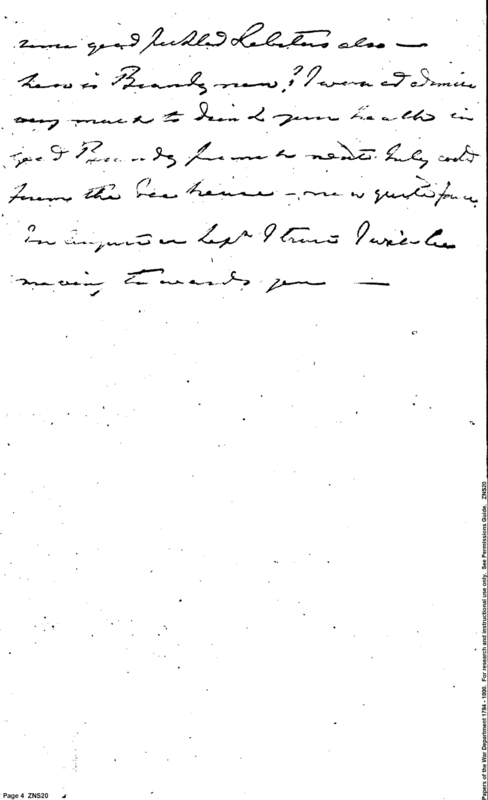 some good pickled Lobsters also —
how is Brandy now? I would admire
very much to drink your health in
good Brandy
from the Ice house — now quite
In August or Sept I trust I will be
moving towards you —
Page 4 ZNS20
Papers of the War Department 1784 - 1800. For research and instructional use only. See Permissions Guide. ZNS20